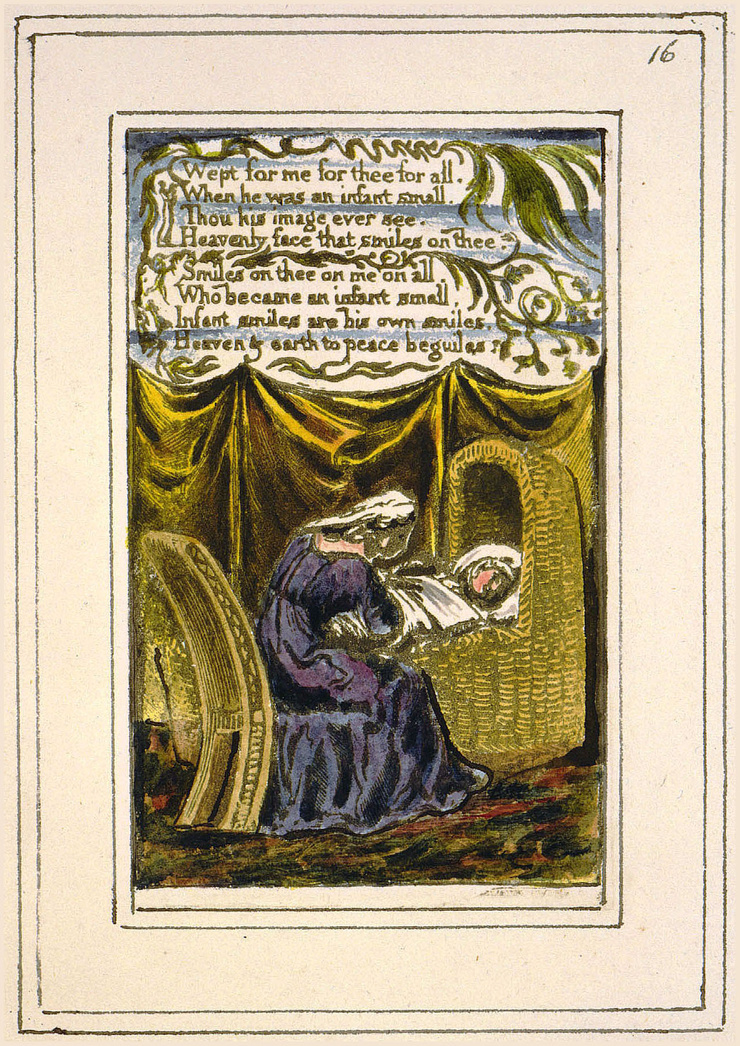 16
Wept for me for thee for all.
When he was an infant small.
Thou his image ever see.
Heavenly face that smiles on thee.
Smiles on thee on me on all
Who became an infant small,
Infant smiles are his own smiles.
Heaven & earth to peace beguiles.